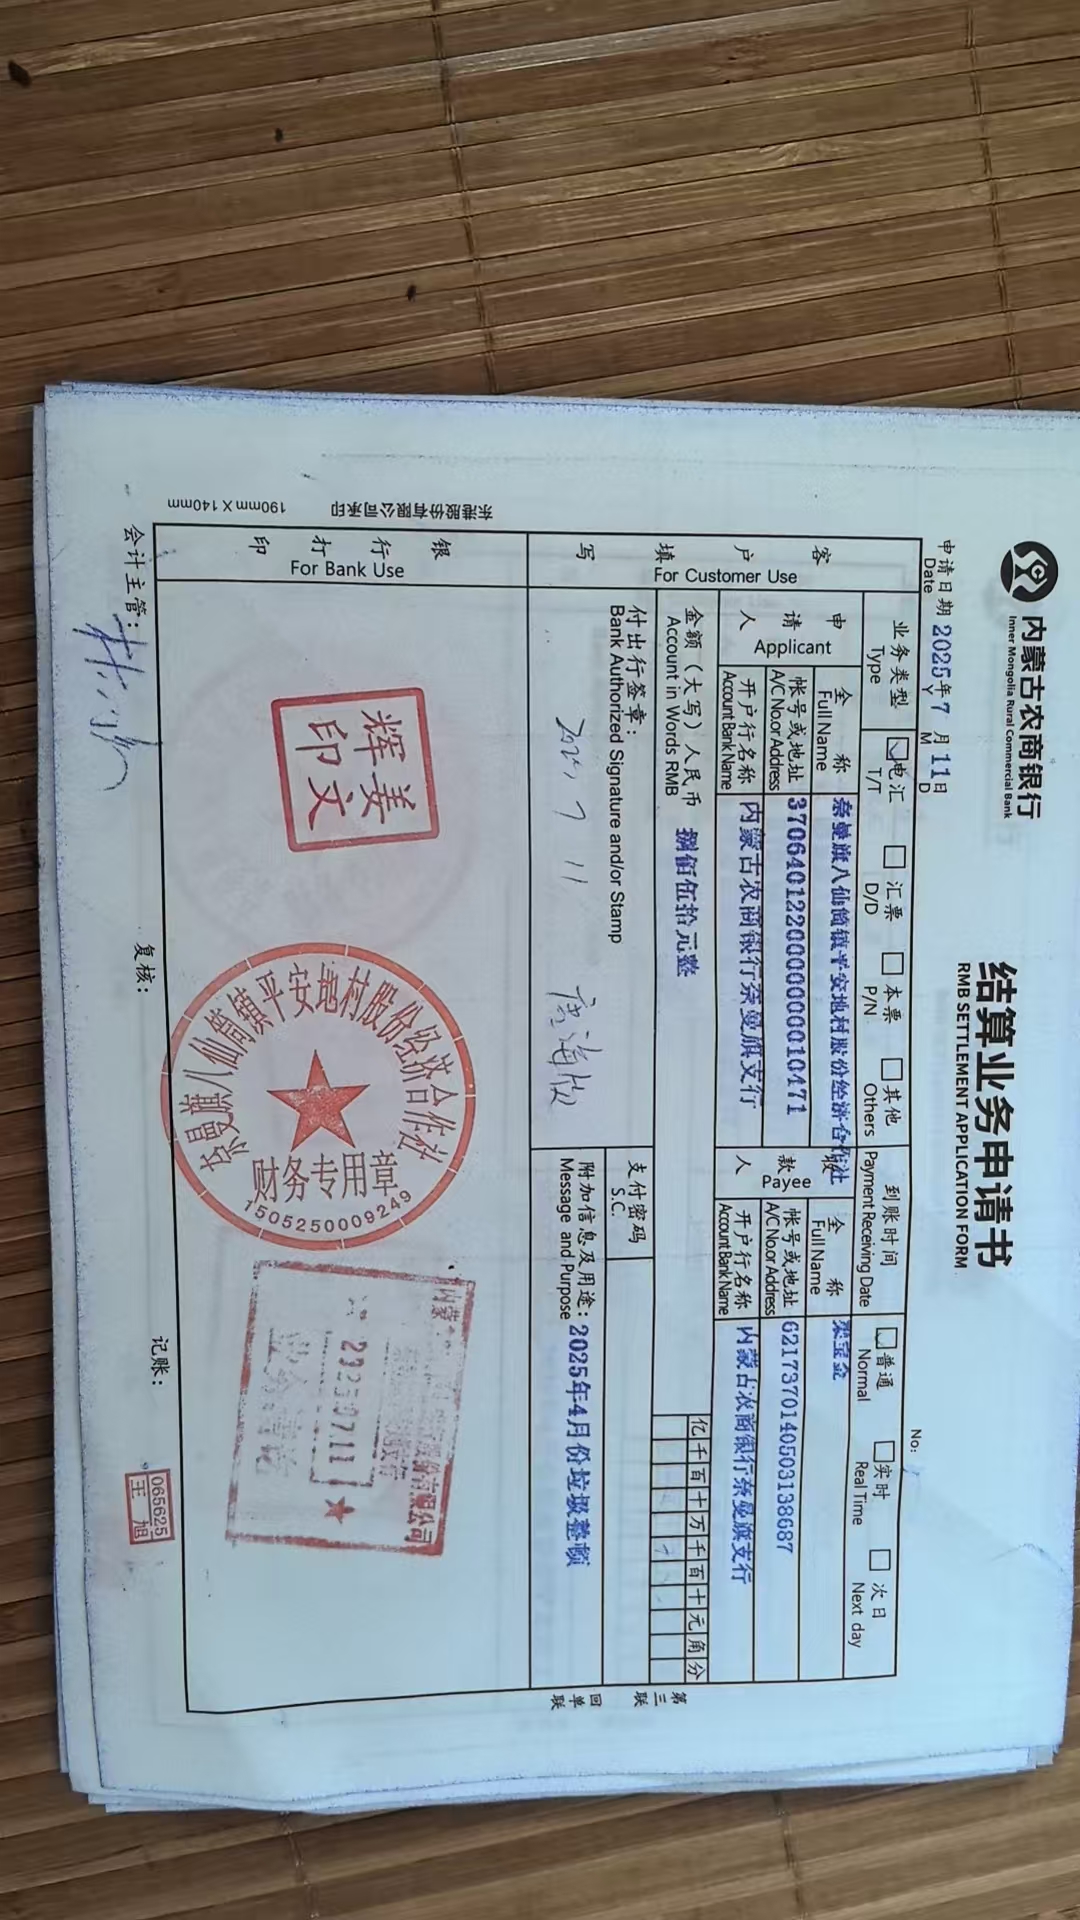 内蒙古农商银行
Inner Mongolia Rural Commercial Bank
结算业务申请书
RMB SETTLEMENT APPLICATION FORM
申请日期 2025年7月11日
Date Y M D
No:
业务类型 电汇 汇票 本票 其他 到账时间 普通 实时 次日
Type T/T D/D P/N Others Payment Receiving Date Normal Real Time Next day
客户填写
For Customer Use
申请人
Applicant
全称 奈曼旗八仙筒镇平安地村股份经济合作社
Full Name
帐号或地址 37064012200000010471
A/C No.or Address
开户行名称 内蒙古农商银行奈曼旗支行
Account Bank Name
收款人
Payee
全称 梁宝金
Full Name
帐号或地址 6217370140503138687
A/C No.or Address
开户行名称 内蒙古农商银行奈曼旗支行
Account Bank Name
金额（大写）人民币 捌佰伍拾元整
Account in Words RMB
亿千百十万千百十元角分
付出行签章：
Bank Authorized Signature and/or Stamp
2025 7 11
支付密码
S.C.
附加信息及用途：2025年4月份垃圾整顿
Message and Purpose
第三联 回单联
银行打印
For Bank Use
姜文辉印
奈曼旗八仙筒镇平安地村股份经济合作社
财务专用章
1505250009249
内蒙
份有限公司
2025.07.11
会计主管：
复核：
记账：
065625
王旭
东港股份有限公司承印 190mm×140mm